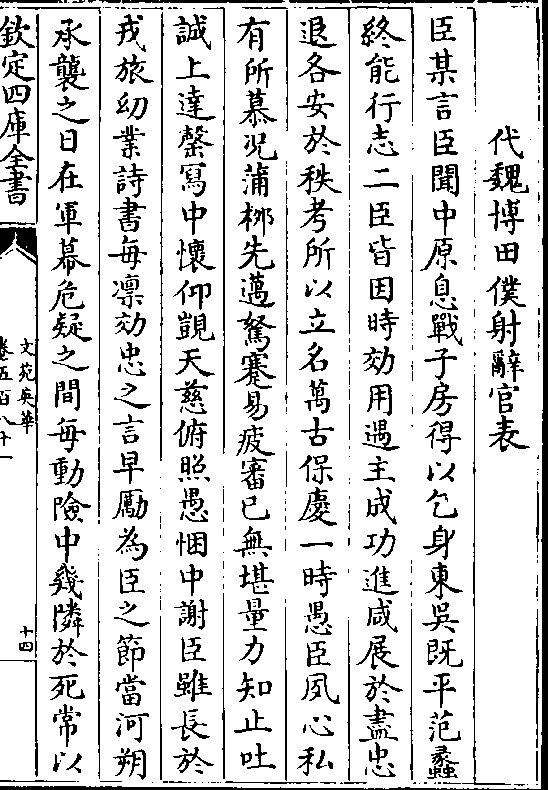 代魏博田僕射辭官表
臣某言臣聞中原息戰子房得以乞身東吳既平范蠡
終能行志二臣皆因時効用遇主成功進咸展於盡忠
退各安於秩考所以立名萬古保慶一時愚臣夙心私
有所慕況蒲栁先邁駑蹇易疲審已無堪量力知止吐
誠上達罄寫中懷仰覬天慈俯照愚悃中謝臣雖長於
戎旅幼業詩書每凛効忠之言早勵為臣之節當河朔
承襲之日在軍幕危疑之間每動險中幾隣於死常以
欽定四庫全書
文苑英華
卷五百八十一
十四